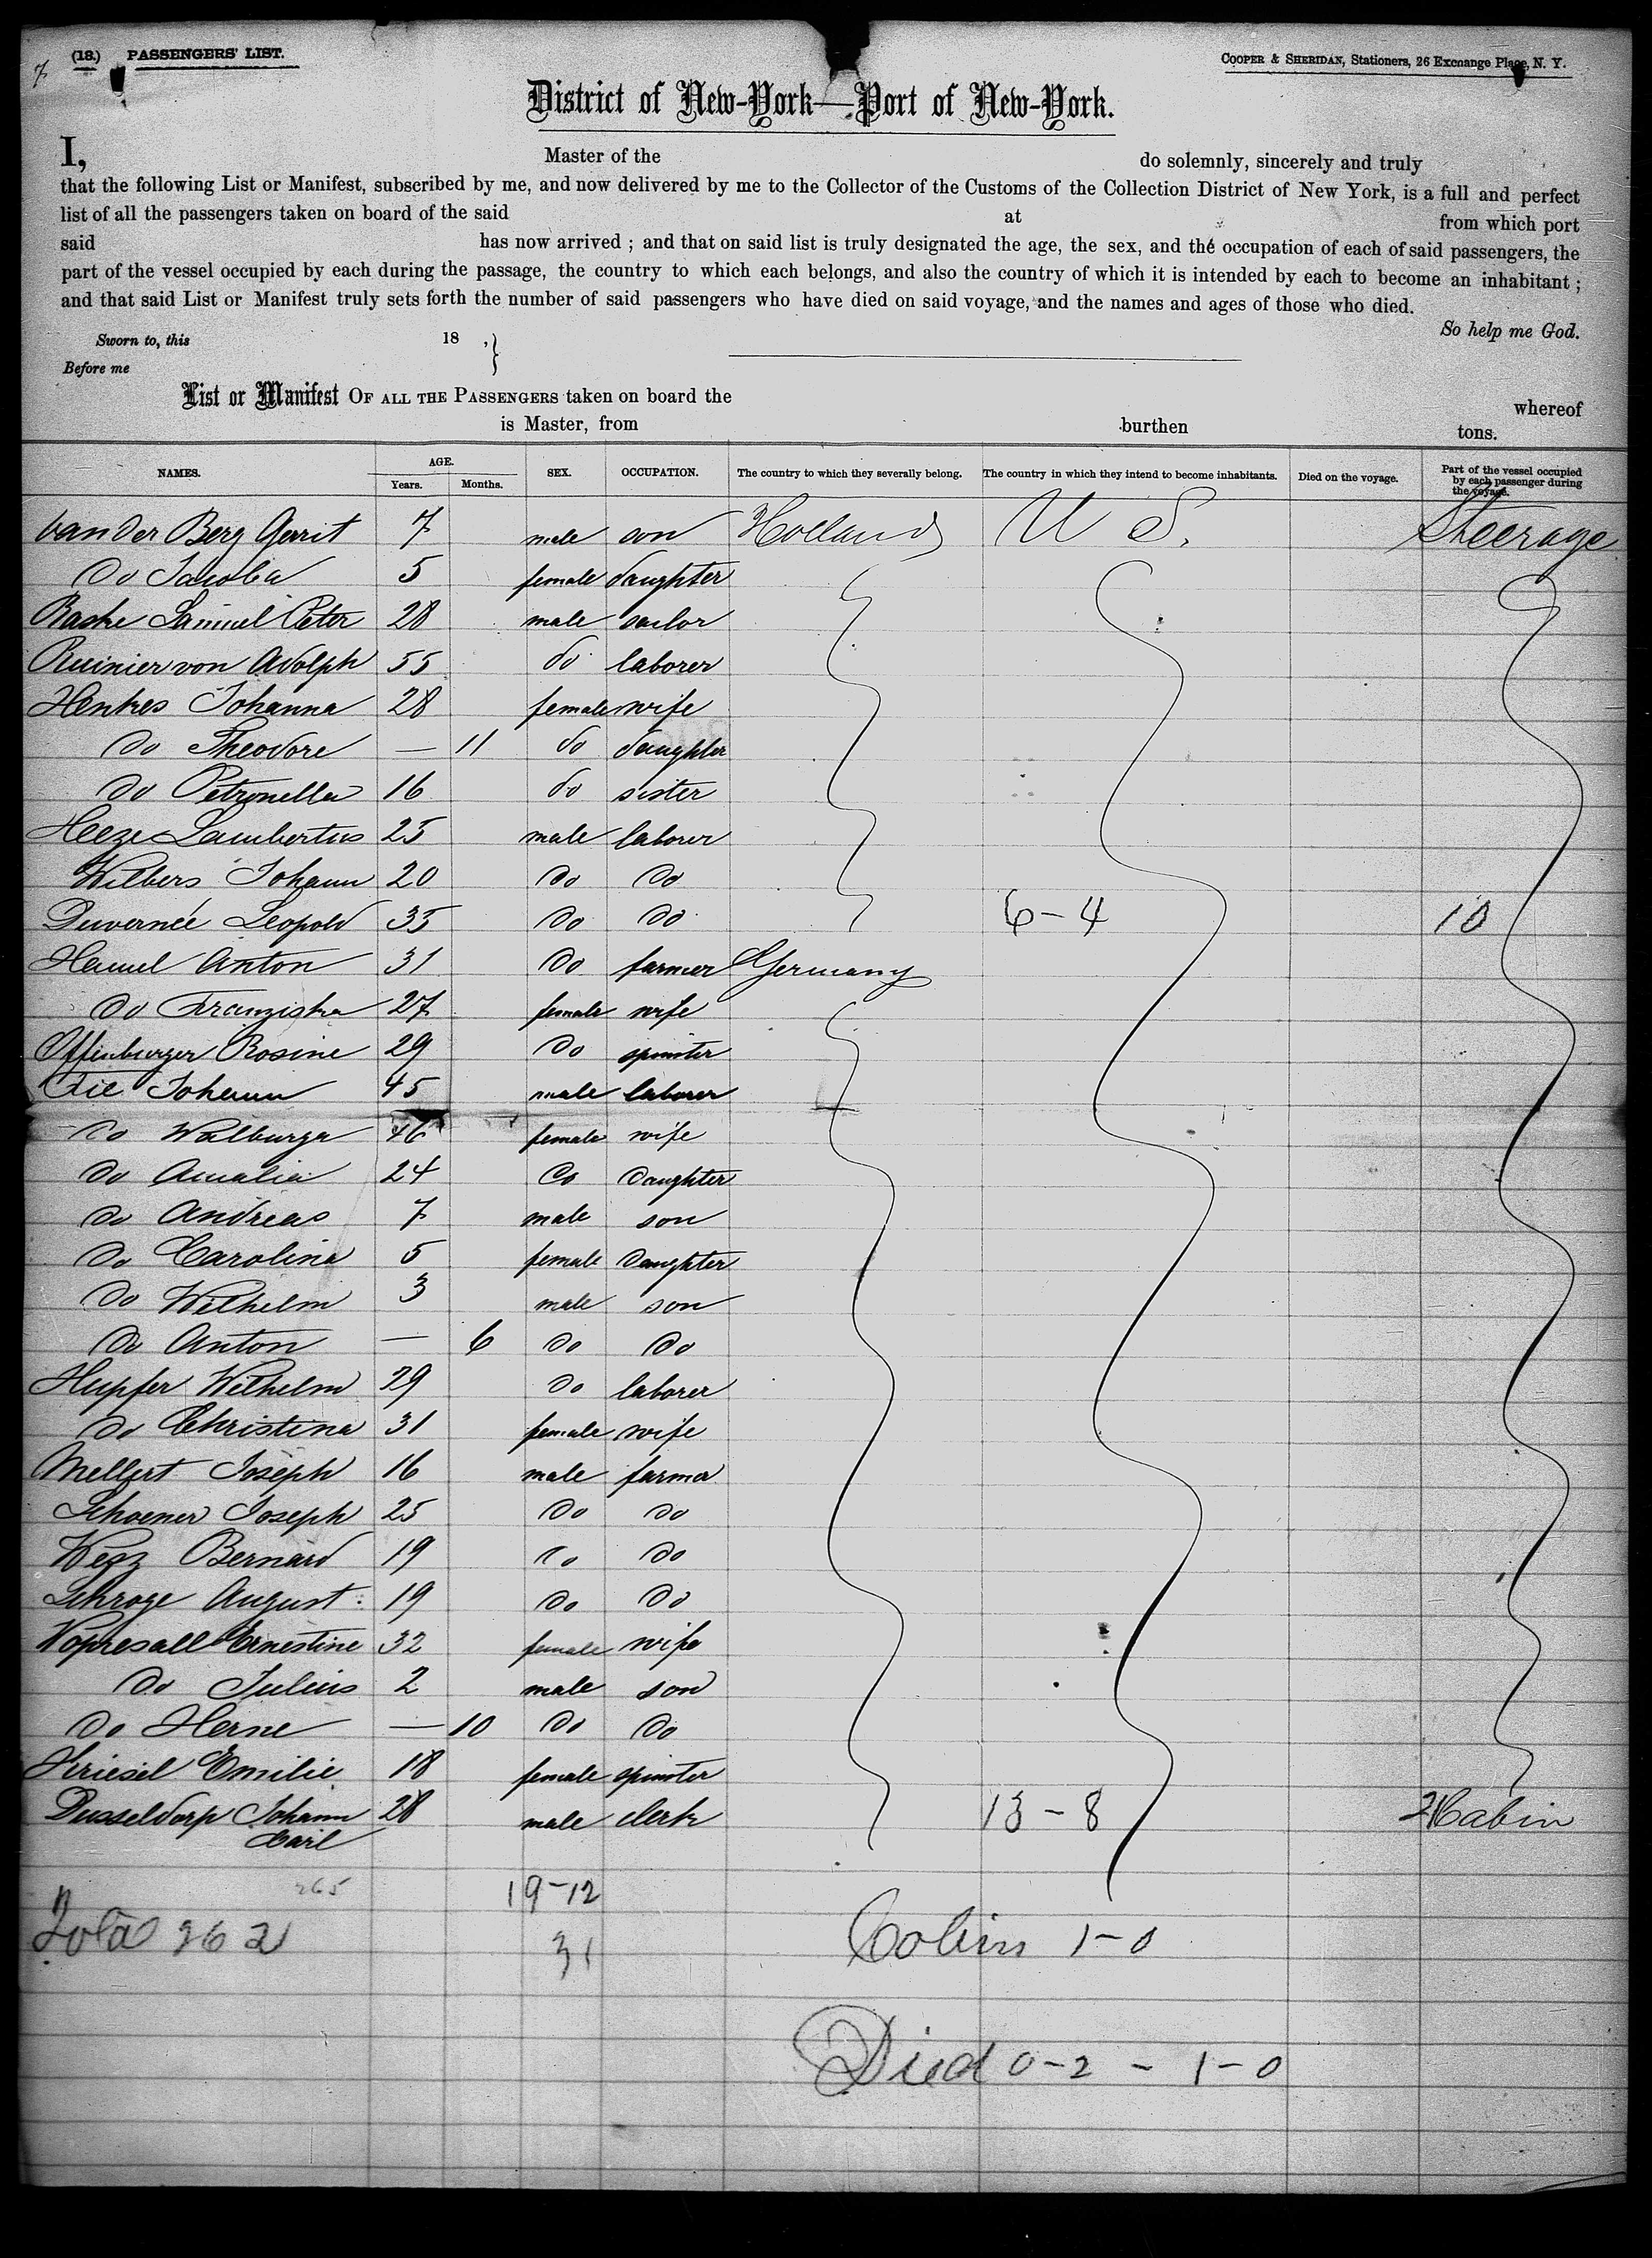 7
(18.) PASSENGERS' LIST.
COOPER & SHERIDAN, Stationers, 26 Exchange Place, N. Y.
District of New-York—Port of New-York.
I, Master of the do solemnly, sincerely and truly
that the following List or Manifest, subscribed by me, and now delivered by me to the Collector of the Customs of the Collection District of New York, is a full and perfect
list of all the passengers taken on board of the said at from which port
said has now arrived ; and that on said list is truly designated the age, the sex, and the occupation of each of said passengers, the
part of the vessel occupied by each during the passage, the country to which each belongs, and also the country of which it is intended by each to become an inhabitant ;
and that said List or Manifest truly sets forth the number of said passengers who have died on said voyage, and the names and ages of those who died.
So help me God.
Sworn to, this 18 ,
Before me
List or Manifest OF ALL THE PASSENGERS taken on board the whereof
is Master, from burthen tons.
NAMES. AGE. Years. Months. SEX. OCCUPATION. The country to which they severally belong. The country in which they intend to become inhabitants. Died on the voyage. Part of the vessel occupied by each passenger during the voyage.
van der Berg Gerrit 7 male son Holland U S. Steerage
Do Jacoba 5 female daughter
Samuel Peter 28 male sailor
von Adolph 55 do laborer
Henkes Johanna 28 female wife
Do Theodore — 11 do daughter
Do Petronella 16 do sister
Heeze Lambertus 25 male laborer
Wilbers Johann 20 Do Do
Duvernée Leopold 35 Do Do 6-4 10
Hamel Anton 31 Do farmer Germany
Do Franziska 27 female wife
Offenburger Rosine 29 Do spinster
Johann 45 male laborer
Do Walburga 46 female wife
Do Amalia 24 Do Daughter
Do Andreas 7 male son
Do Carolina 5 female Daughter
Do Wilhelm 3 male son
Do Anton — 6 Do Do
Hupfer Wilhelm 29 Do laborer
Do Christina 31 female wife
Mellert Joseph 16 male farmer
Schoener Joseph 25 Do Do
Bernard 19 Do Do
Schroge August 19 Do Do
Ernestine 32 female wife
Do Julius 2 male son
Do Herne — 10 Do Do
Emilie 18 female spinster
Dusseldorp Johann 28 male clerk 13-8 2 Cabin
Carl
265 19-12
Total 262 31 Cabin 1-0
Died 0-2 - 1-0